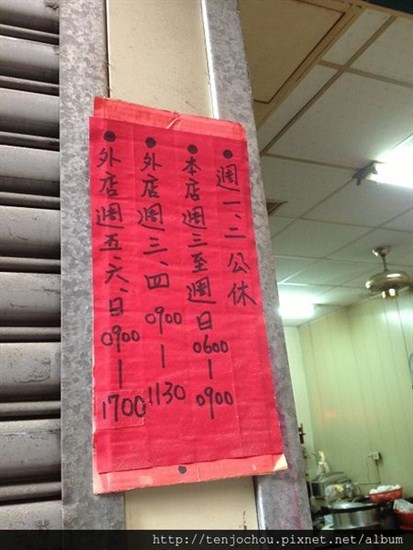 ●週一、二公休
●本店週三至週日0600-0900
●外店週三、四0900-1130
●外店週五、六、日0900-1700
http://tenjochou.pixnet.net/album